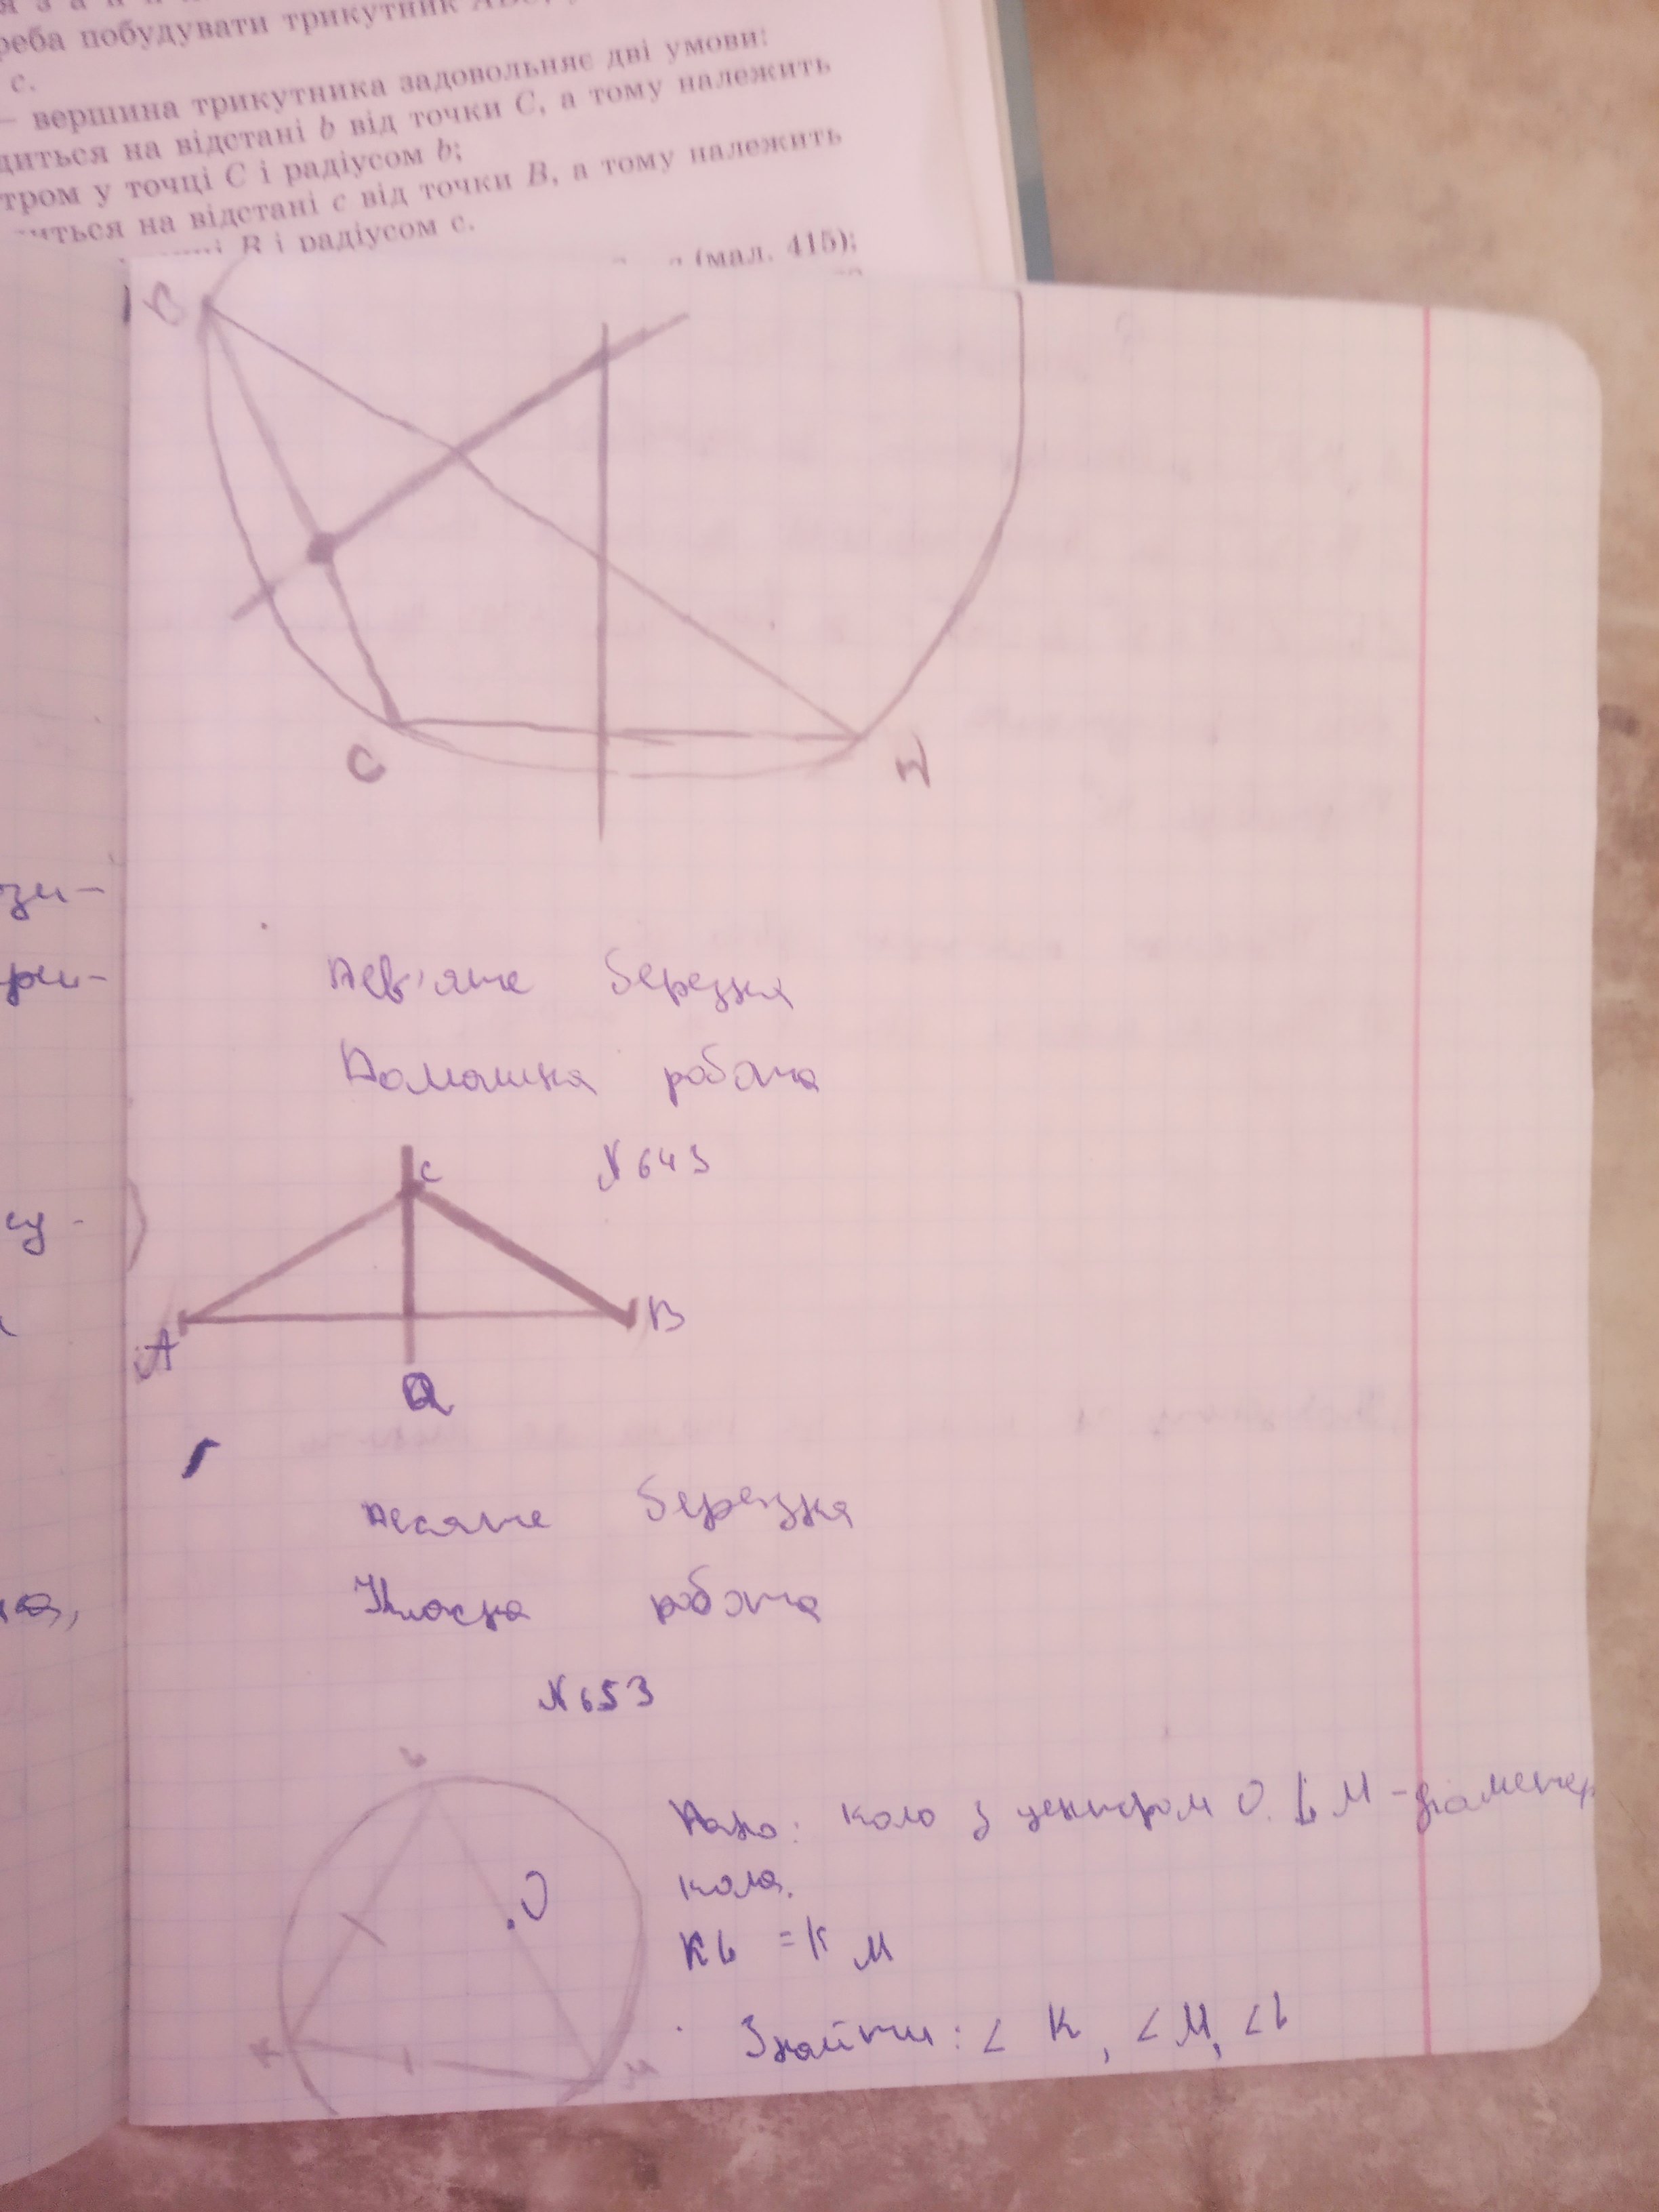 реба побудувати трикутник
с.
— вершина трикутника задовольняє дві умови:
диться на відстані b від точки C, а тому належить
тром у точці C і радіусом b;
иться на відстані c від точки B, а тому належить
B і радіусом c.
(мал. 415);
C
зи-
ри-
Дев'яте березня
Домашня робота
N 643
C
су-
A
B
Q
Десяте березня
Класна робота
N 653
L
Дано: коло з центром O. LM - діаметр
O
кола.
KL = KM
Знайти: ∠ K, ∠ M, ∠ L
K
M